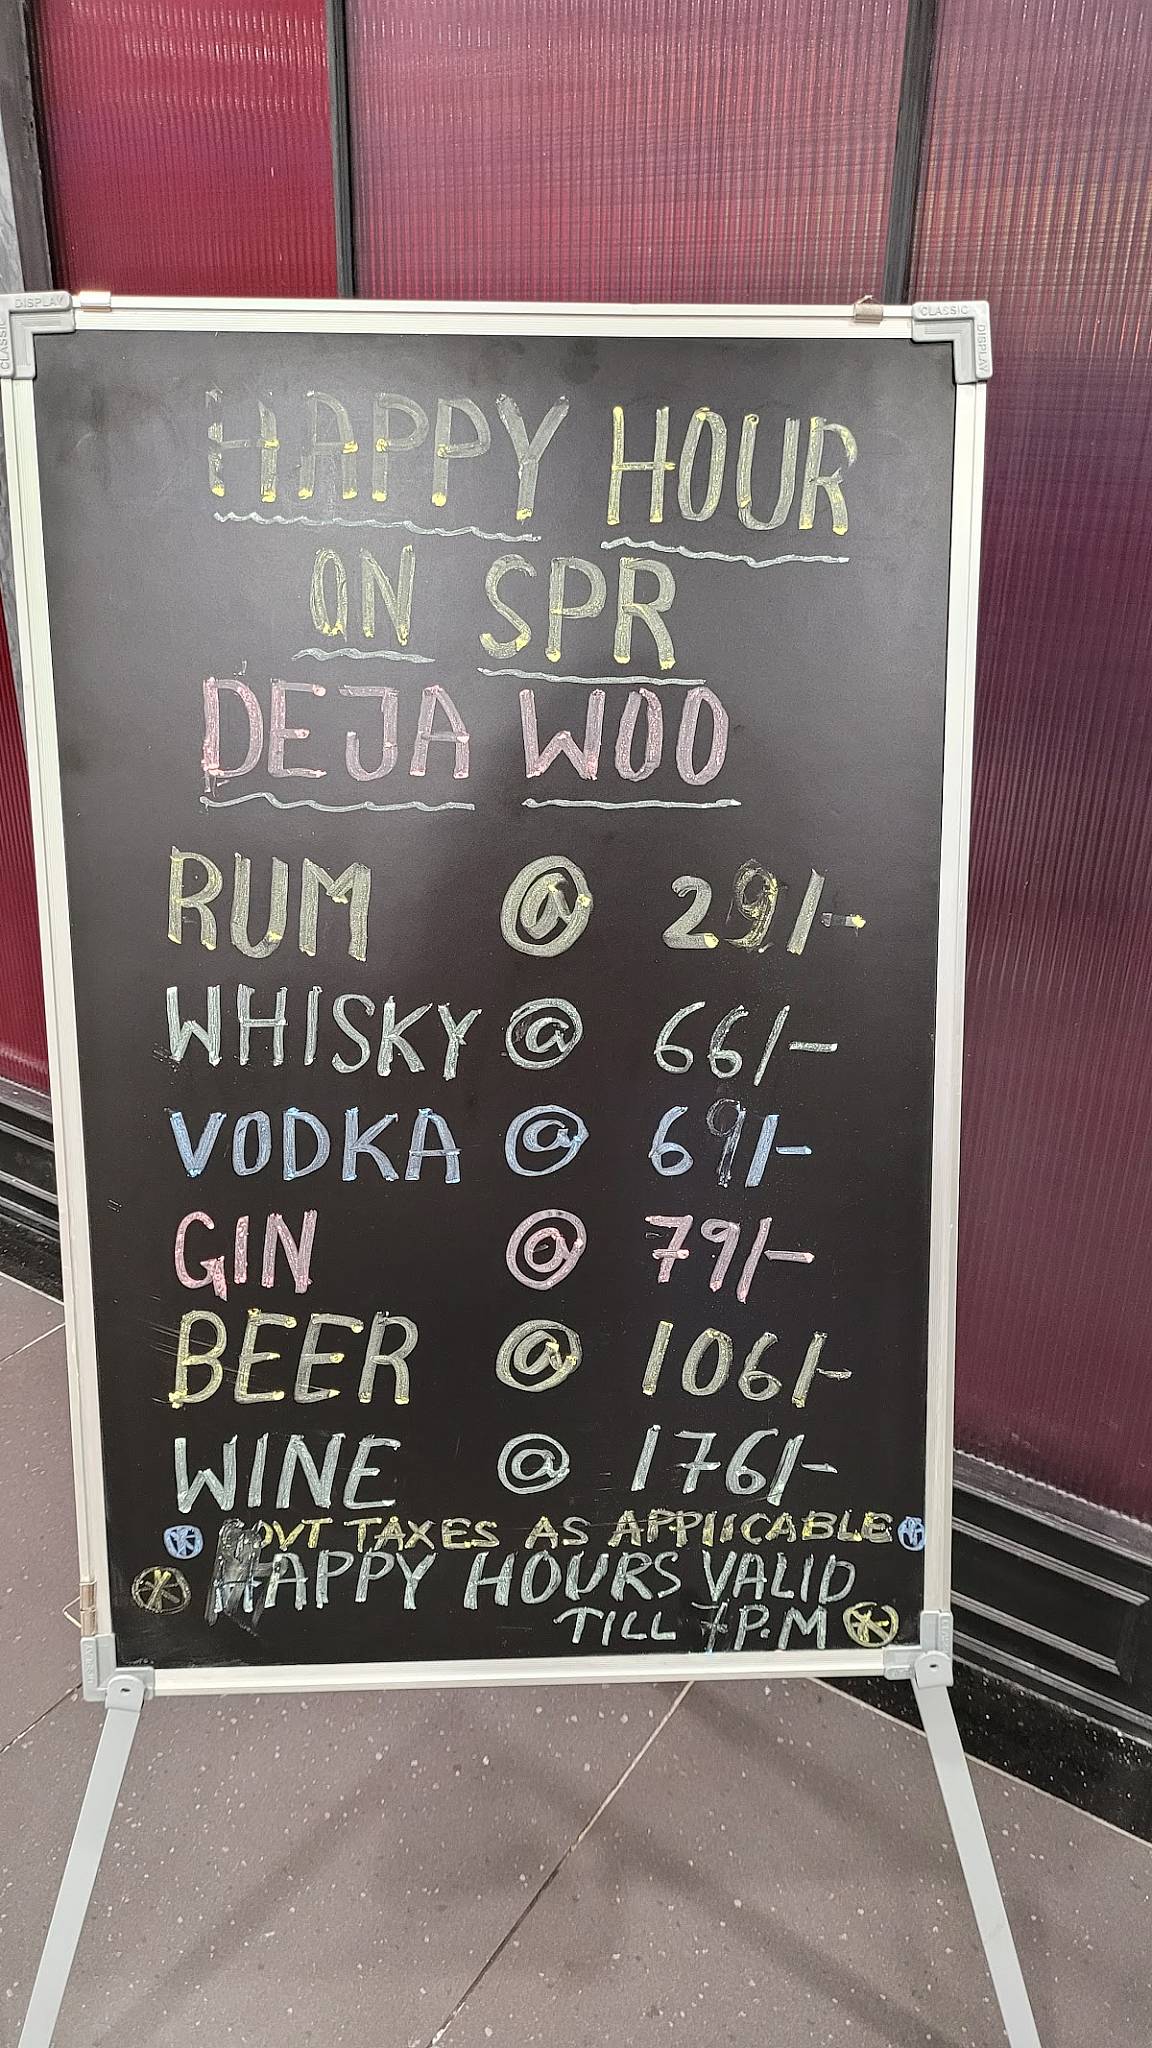 CLASSIC DISPLAY
CLASSIC DISPLAY
HAPPY HOUR
ON SPR
DEJA WOO
RUM @ 29/-
WHISKY @ 66/-
VODKA @ 69/-
GIN @ 79/-
BEER @ 106/-
WINE @ 176/-
GOVT TAXES AS APPIICABLE
HAPPY HOURS VALID
TILL 7 P.M